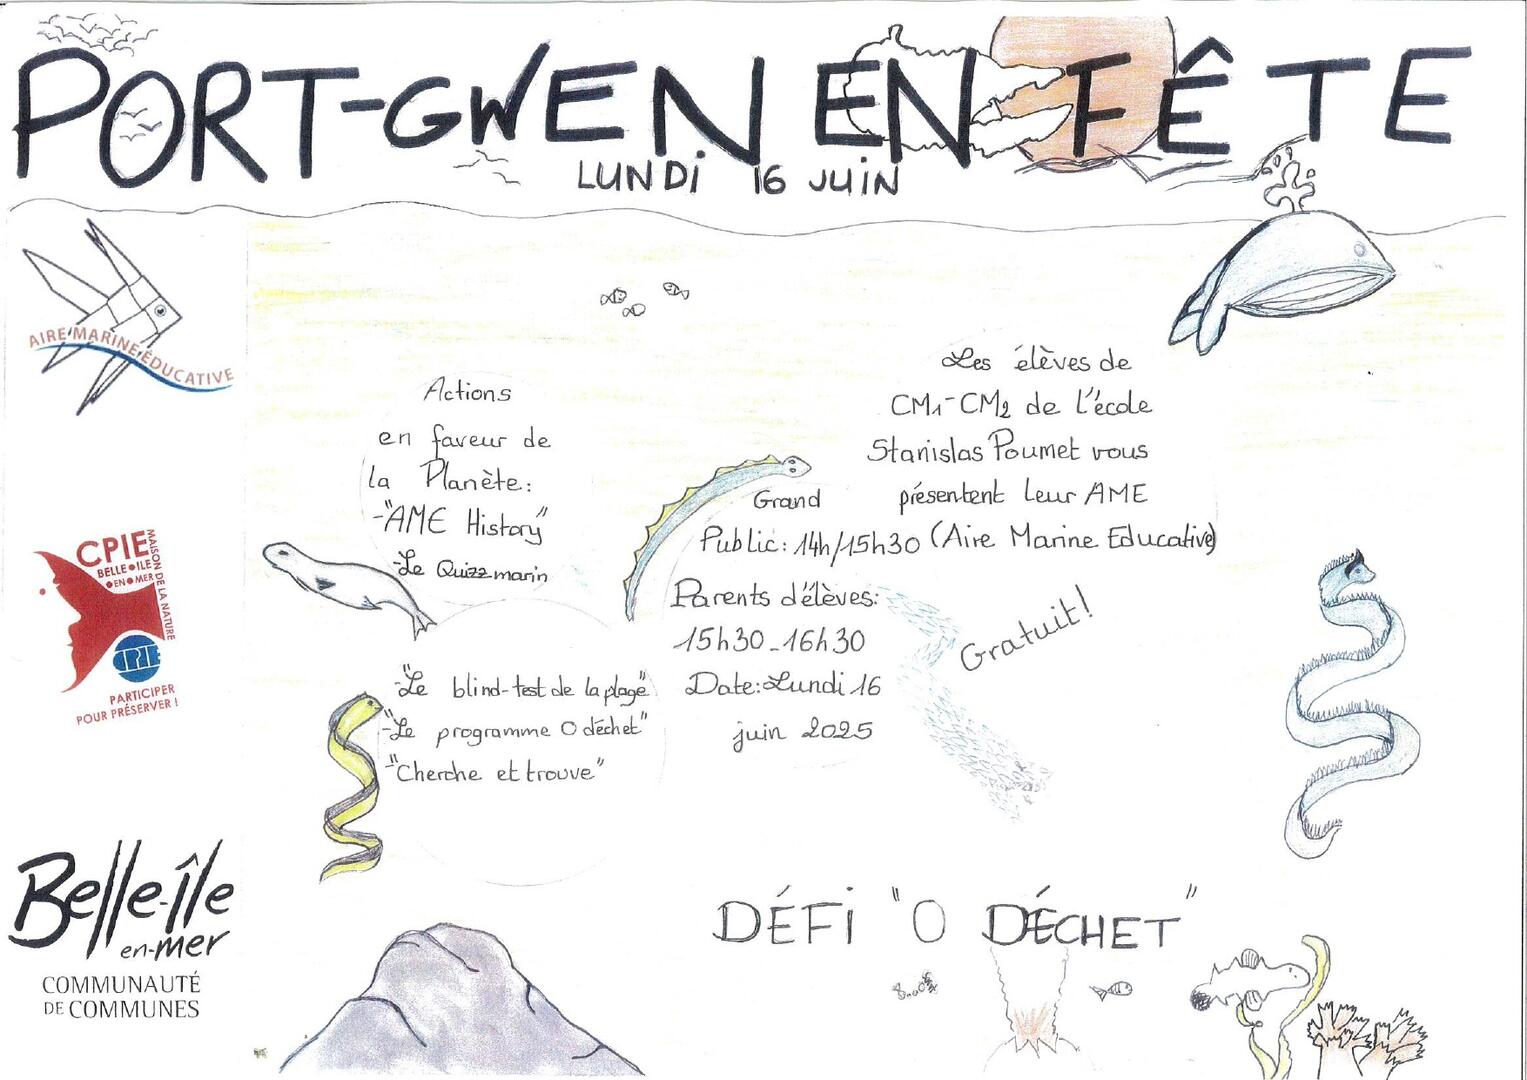 PORT-GWEN EN FÊTE
LUNDI 16 JUIN
AIRE MARINE ÉDUCATIVE
Actions
en faveur de
la Planète:
-"AME History"
-Le Quizz marin
"Le blind-test de la plage"
-"Le programme 0 déchet"
-"Cherche et trouve"
Grand
Public: 14h/15h30
Parents d'élèves:
15h30-16h30
Date: Lundi 16
juin 2025
Les élèves de
CM1-CM2 de l'école
Stanislas Poumet vous
présentent leur AME
(Aire Marine Educative)
Gratuit!
CPIE
BELLE•ILE
•EN•MER
MAISON DE LA NATURE
CPIE
PARTICIPER
POUR PRÉSERVER !
Belle-île
en-mer
COMMUNAUTÉ
DE COMMUNES
DÉFI "0 DÉCHET"